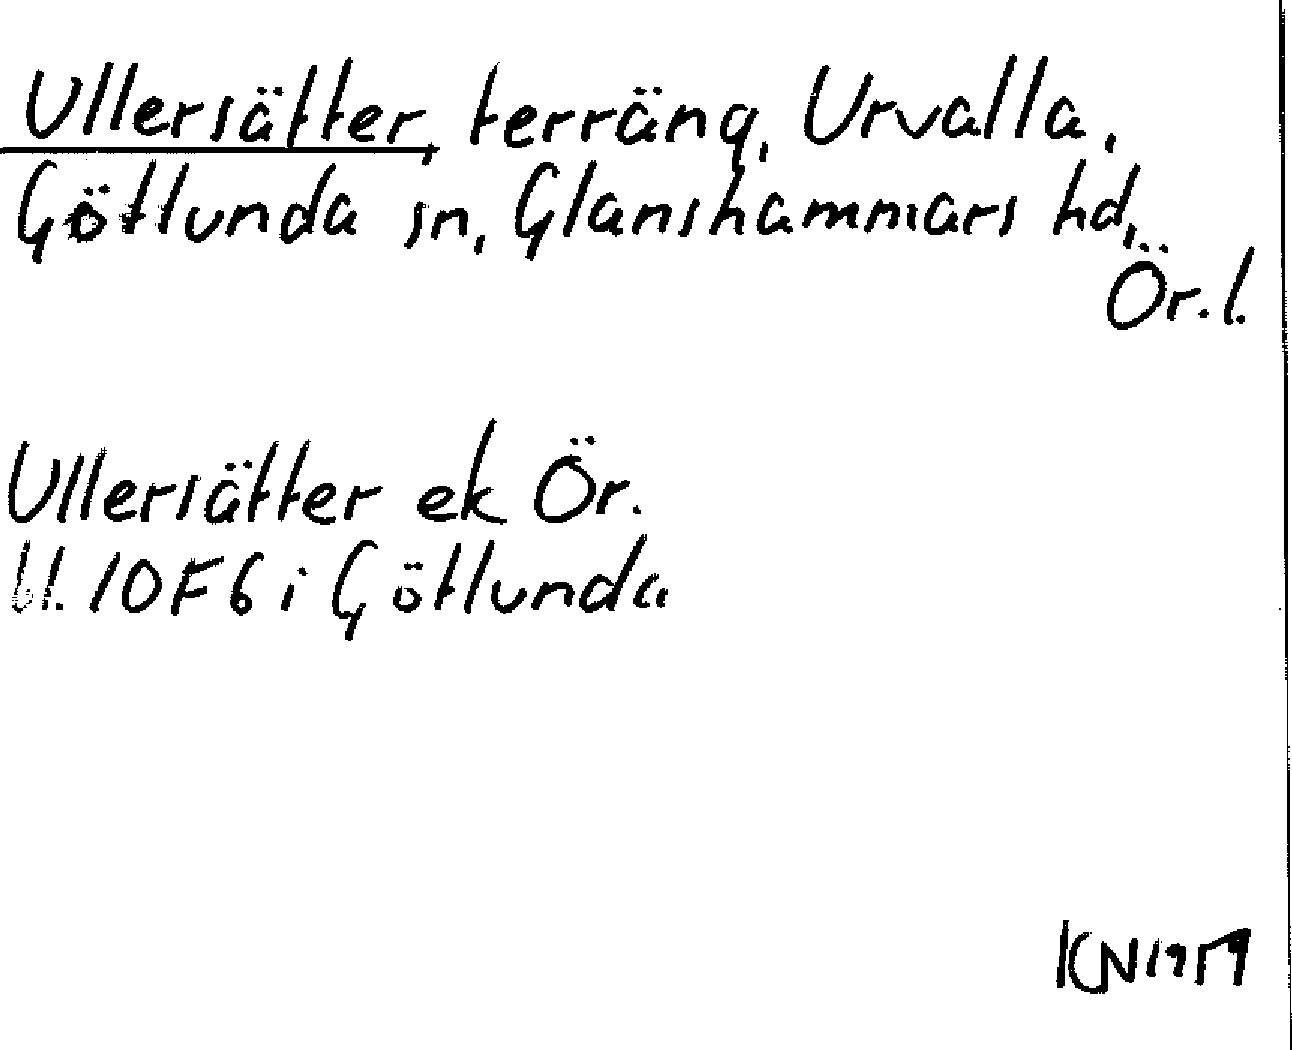 Ullersätter, terräng, Urvalla,
Götlunda sn, Glanshammars hd,
Ör. l.
Ullersätter ek Ör.
bl. 10F6 i Götlunda